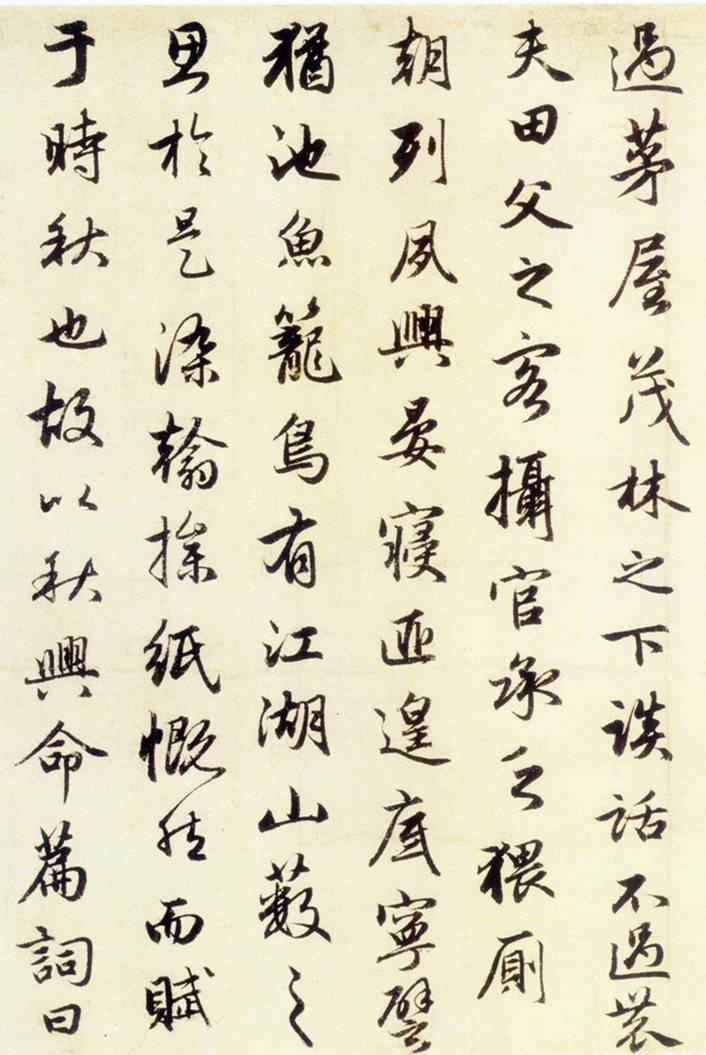 過茅屋茂林之下談話不過農
夫田父之客攝官承乏猥厠
朝列夙興晏寢匪遑底寧譬
猶池魚籠鳥有江湖山藪之
思於是染翰操紙慨然而賦
于時秋也故以秋興命篇詞曰